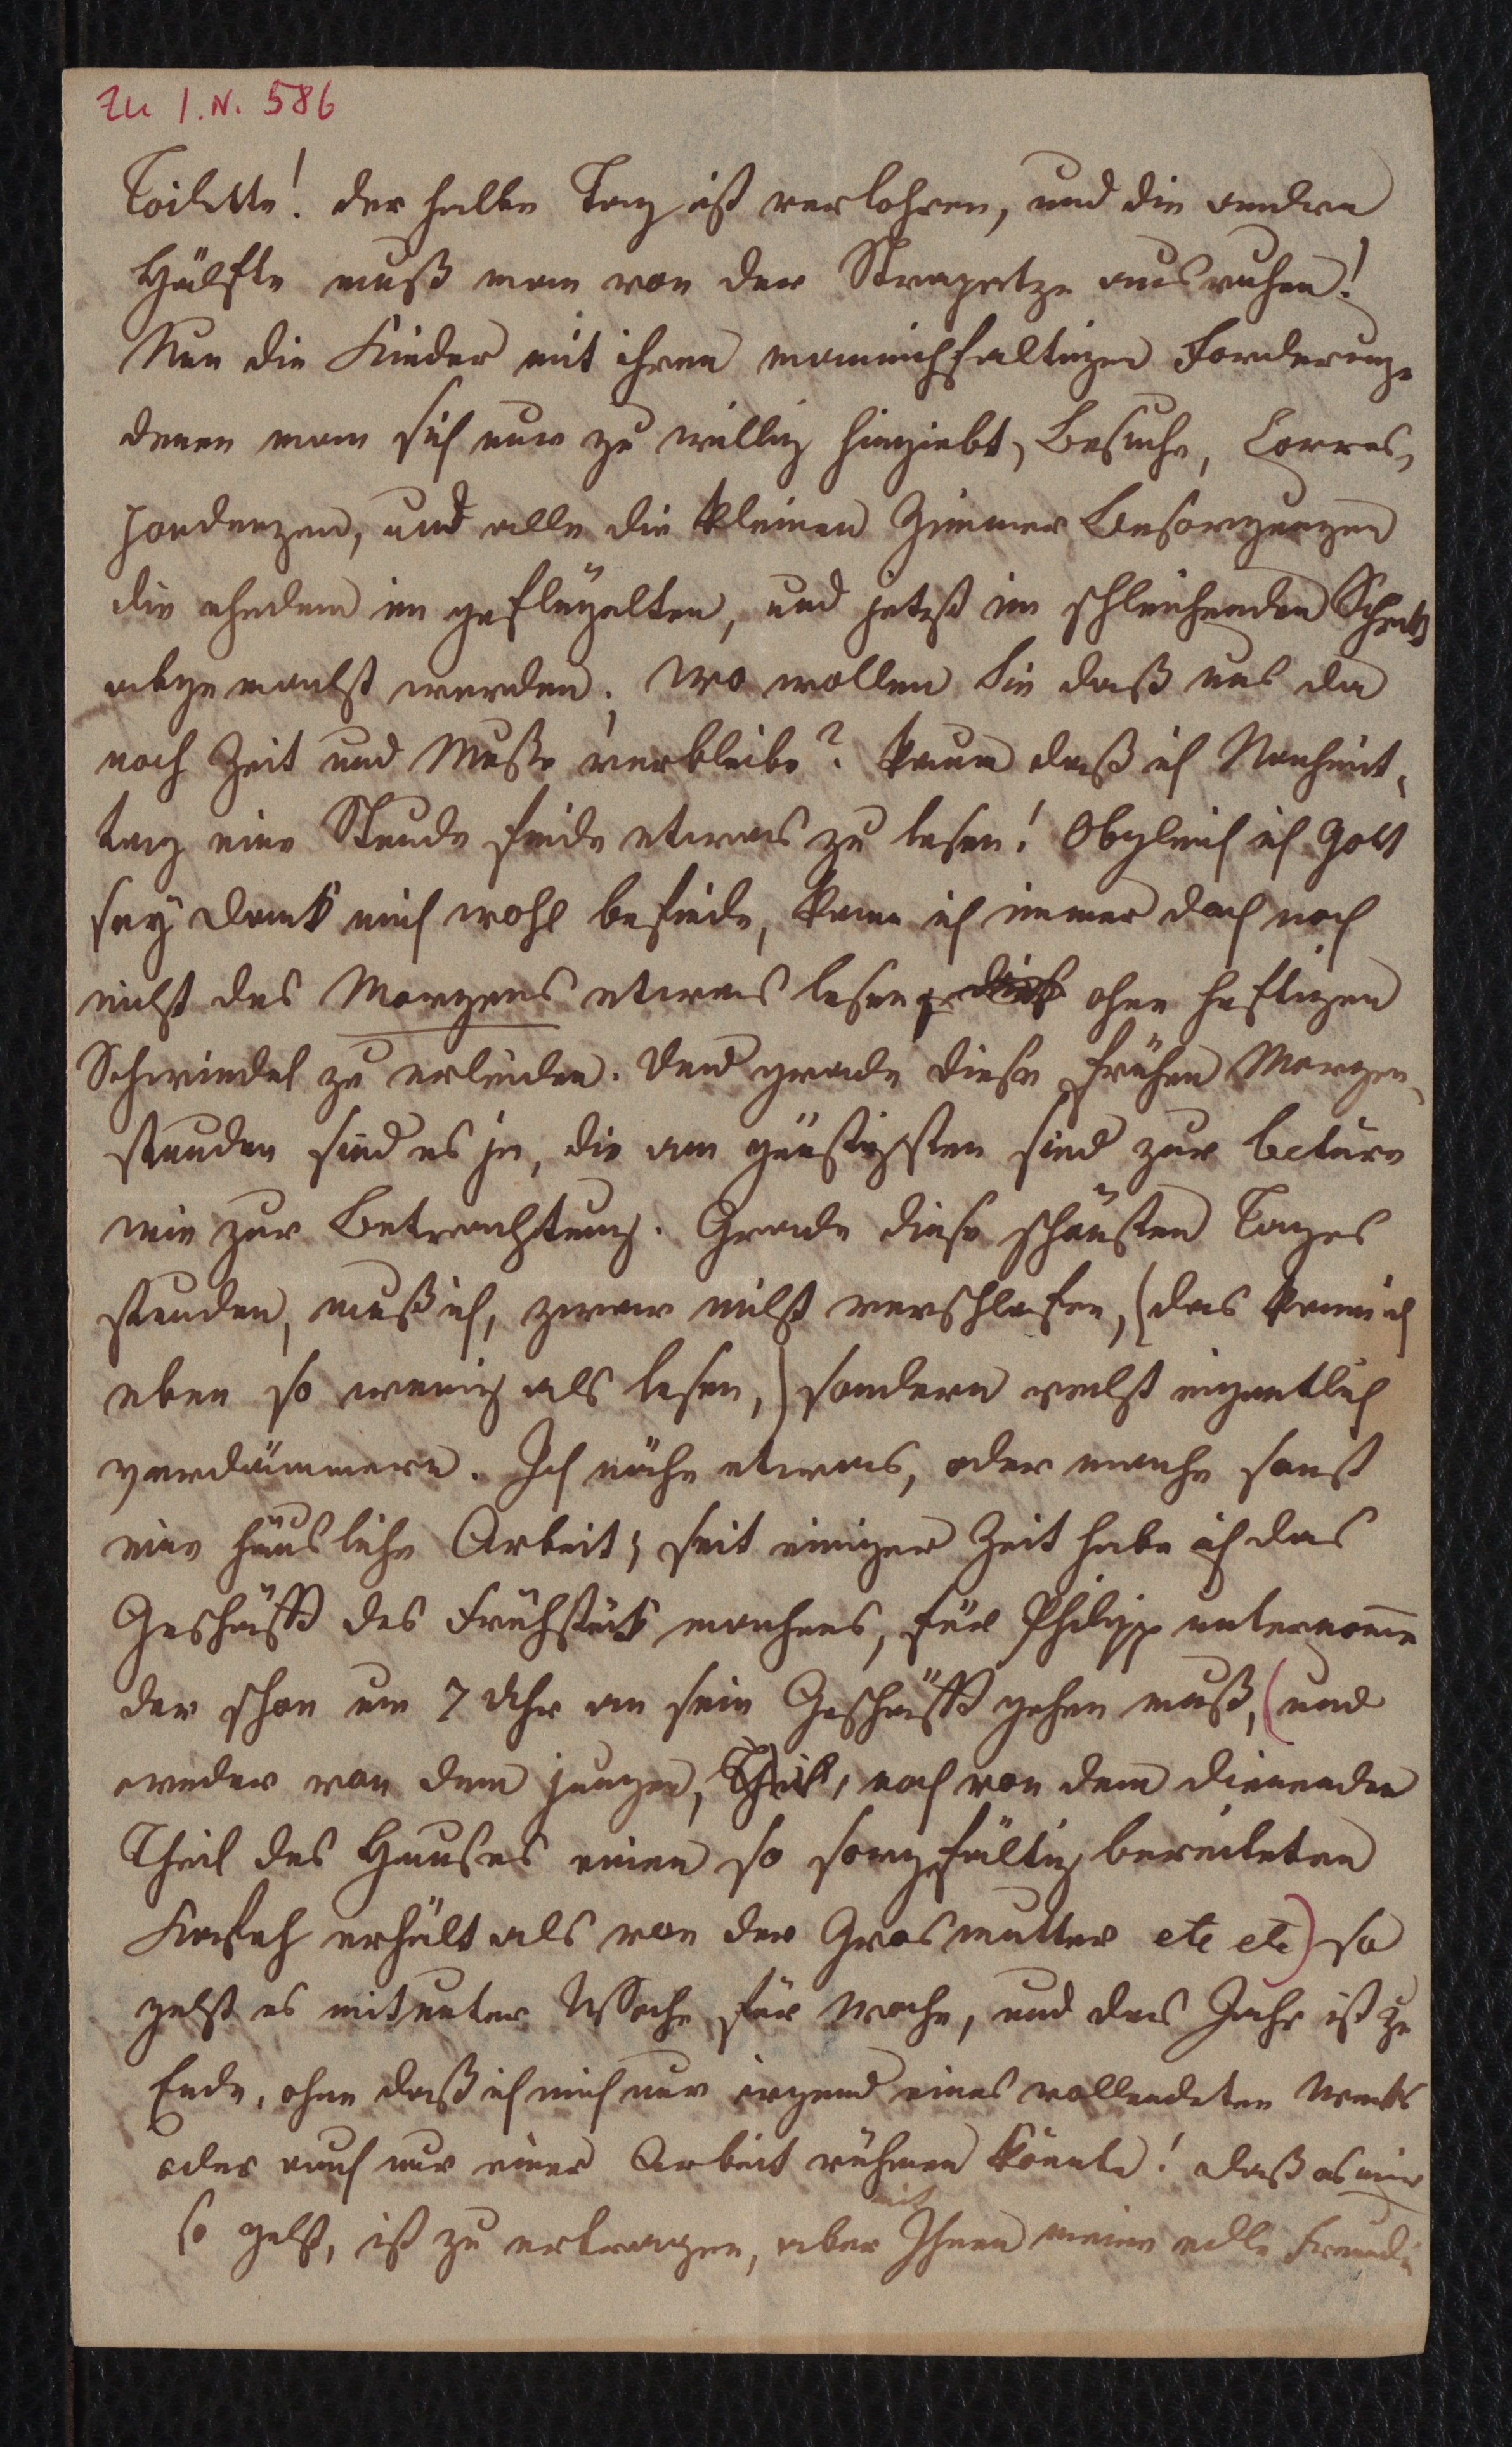 Zu I.N. 586
Toilette! der halbe Tag ist verlohren, und die andere
Hälfte muß man von der Strapatze ausruhen!
Nun die Kinder mit ihren mannichfaltigen Forderunge
denen man sich nur zu willig hingiebt, Besuche, Corres¬
pondenzen, und alle die kleinen Zimmer Besorgungen
die ehedem im geflügelten, und jetzt im schleichenden Schritt
abgemacht werden. Wo wollen Sie daß uns da
noch Zeit und Muße verbleibe? kaum daß ich Nachmit¬
tag eine Stunde finde etwas zu lesen! Obgleich ich Gott
sey dank mich wohl befinde, kann ich immer doch noch
nicht des Morgens etwas lesen ohne heftigen
Schwindel zu erleiden. Und grade diese frühen Morgen¬
stunden sind es ja, die am günstigsten sind zur lecture
wie zur Betrachtung. Grade diese schönsten Tages
stunden, muß ich, zwar nicht verschlafen, (das kann ich
eben so wenig als lesen,) sondern recht eigentlich
verdämmern. Ich nähe etwas, oder mache sonst
eine häusliche Arbeit; seit einiger Zeit habe ich das
Geschäfft des Frühstück machens, für Philipp unternomēn
der schon um 7 Uhr an sein Geschäfft gehen muß, (und
weder von dem jungen, Theil, noch von dem dienenden
Theil des Hauses einen so sorgfältig bereiteten
Kafeh erhält als von der Grosmutter etc etc) so
geht es mitunter Woche für Woche, und das Jahr ist zu
Ende, ohne daß ich mich nur irgend eines vollendeten Werks
oder auch nur einer Arbeit rühmen könnte! daß es mir
so geht, ist zu ertragen, aber mit Ihnen meine edle Freundin